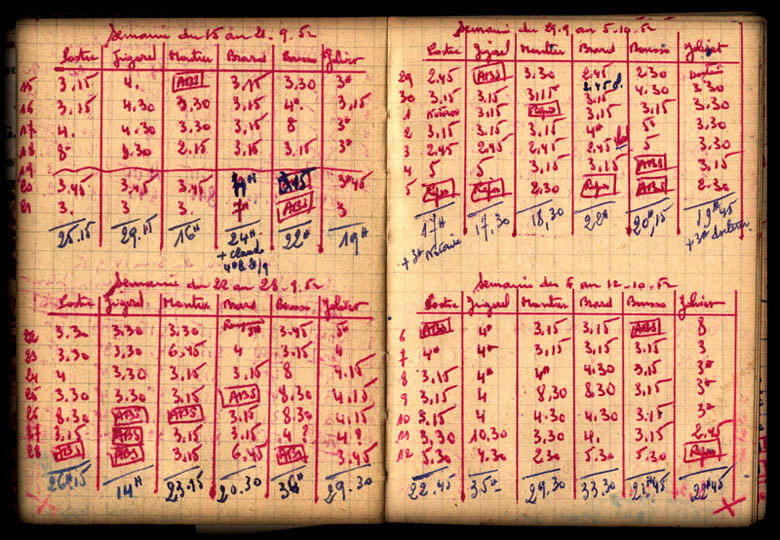 Semaine du 15 au 21-9.52
Costre Jigorel Montier Brard Bousso Jehier
15 3.15 4. ABS 3.15 3.30 3H
16 3.15 4.30 3.30 3.15 4H 3,15
17 4. 4.30 3.30 3.15 8 3H
18 8- 8.30 2.15 3.15 3,15 3H
19
20 3.45 3,45 3.45 3H45
21 3. 3. 3. 7H ABS 3
25.15 29.15 16H 24H 22H 19H
+ claude
Semaine du 22 au 28-9.52
Costre Jigorel Montier Brard Bousso Jehier
22 3.30 3.30 3.30 3.45 5H
23 3.30 3.30 6.45 4 3.15 4
24 4 3.30 3.15 3.15 8 4.15
25 3.30 3.30 3.15 ABS 8.30 4.15
26 8.30 ABS ABS 3.15 8.30 4.15
27 3.15 ABS 3.15 3.15
28 ABS 3.15 6.45 ABS 3.45
26H15 14H 23.15 20.30 29.30
Semaine du 29.9 au 5.10.52
Costre Jigorel Montier Brard Bousso Jehier
29 2.45 ABS 3.30 2.45 2.30
30 3.15 3.15 3.15 3.15 4.30 3.30
1 Repos 3.15 3.15 3.30
2 3.15 3.15 3.15 4H 5 3.30
3 2.45 2.45 3.15 2.45 5 3.30
4 5 5 3.15 3.15 ABS 3.15
5 Repos Repos 2.30 Repos ABS 2.30
17H 17.30 18,30 22H 20H,15 19H45
Semaine du 6 au 12-10.52
Costre Jigorel Montier Brard Bousso Jehier
6 ABS 4H 3.15 3.15 ABS 8
7 4H 4H 3.15 3.15 3.15 3
8 3.15 4H 4H 4.30 3.15 3H
9 3.15 4 8.30 8.30 3,15 3H
10 3.15 4 4.30 4.30 3.15 3H
11 3,30 10.30 3.30 4. 3.15 2.45
12 5.30 4.30 2.30 5.30 5.30 Repos
22.45 35H 29,30 33.30 21H45 22H45